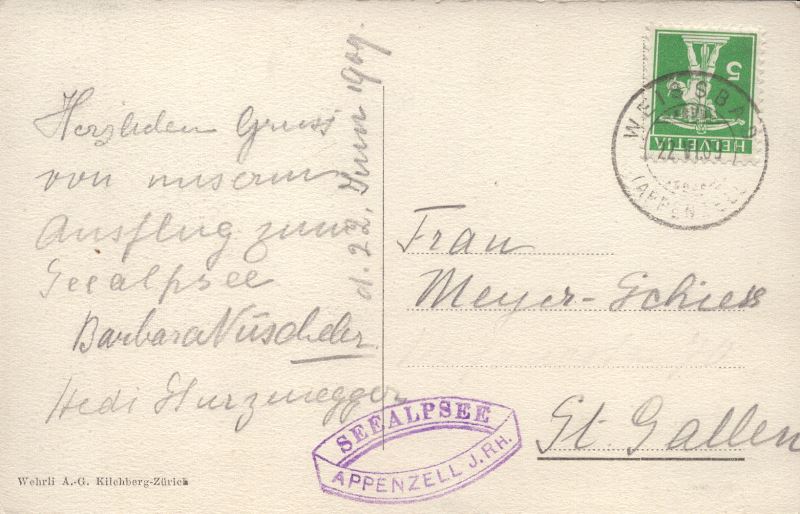 Herzlichen Gruss
von unserm
Ausflug zum
Seealpsee
Barbara Nüscheler
Hedi Sturzenegger
d. 22. Juni 1909.
5
HELVETIA
WEISSBAD
22.VI.09
(APPENZELL)
Frau
Meyer-Schiess
St. Gallen
SEEALPSEE
APPENZELL J.RH.
Wehrli A.-G. Kilchberg-Zürich